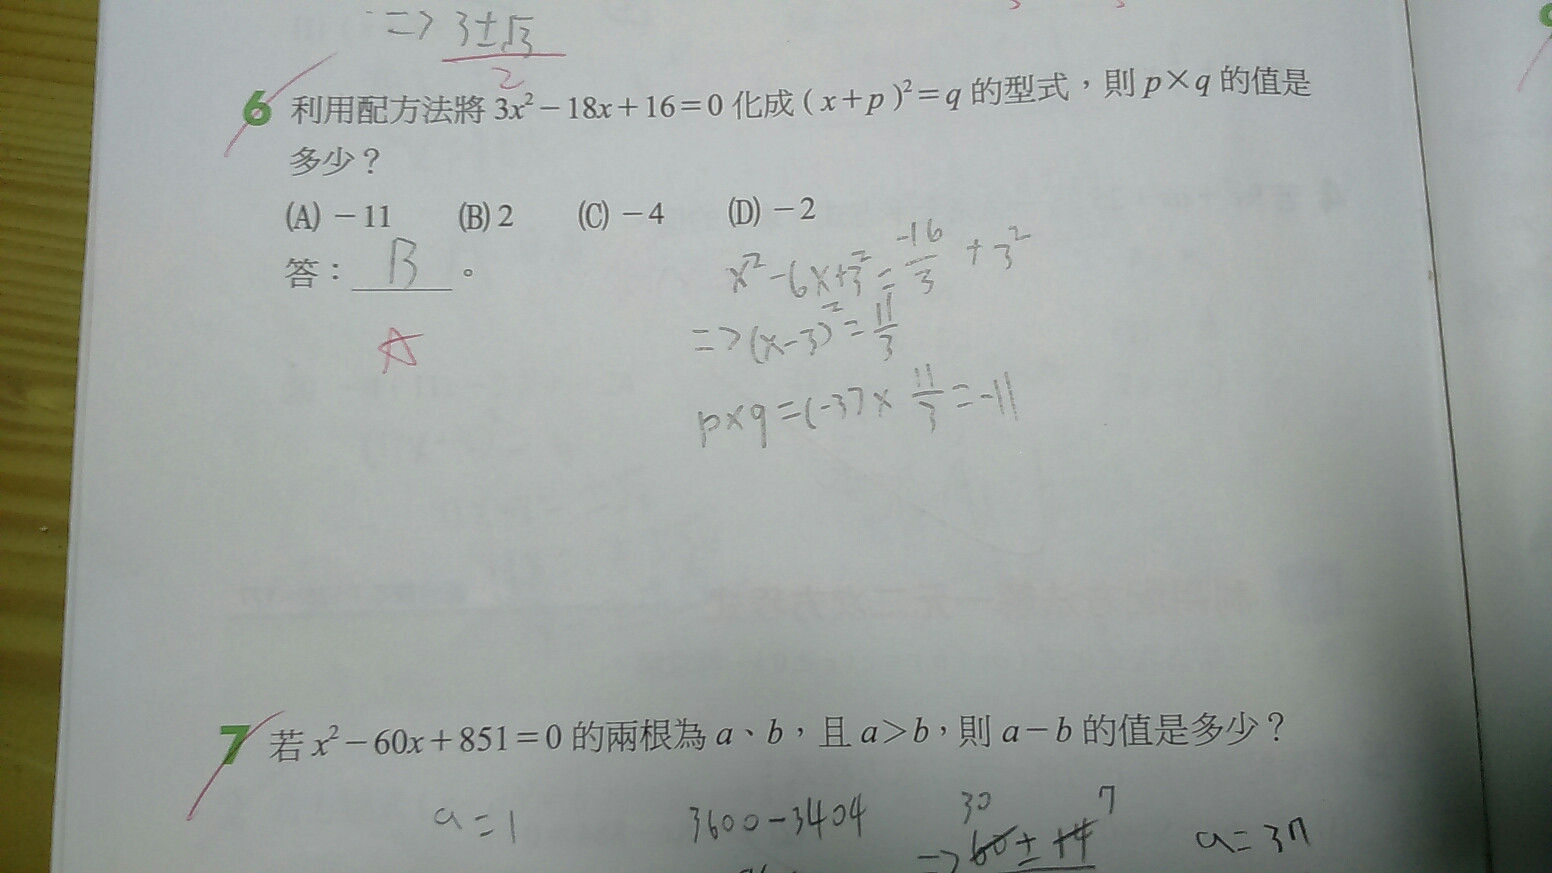 => 3±√3
2
6 利用配方法將 3x²－18x＋16＝0 化成 ( x＋p )²＝q 的型式，則 p×q 的值是
多少？
(A) －11 (B) 2 (C) －4 (D) －2
答：B。
A
x²-6x+3²=-16/3+3²
=>(x-3)²=11/3
p×q=(-3)×11/3=-11
7 若 x²－60x＋851＝0 的兩根為 a、b，且 a＞b，則 a－b 的值是多少？
a=1 3600-3404 30 7
=>60±14 a=37